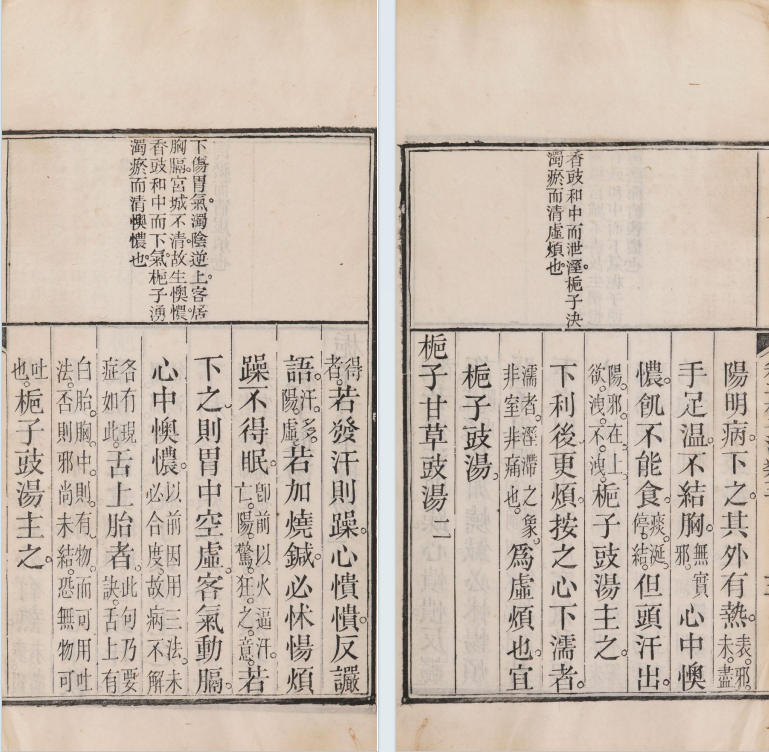 香豉和中而泄溼。梔子決
濁瘀而清虛煩也。
陽明病。下之。其外有熱。表。邪。未。盡
手足温。不結胸。無實邪心中懊
憹。飢不能食。痰涎。停結。但頭汗出。
陽。邪。在。上。欲。洩。不。洩。梔子豉湯主之。
下利後更煩。按之心下濡者。
濡者。溼滯之象。非窒非痛也。爲虛煩也。宜
梔子豉湯。
梔子甘草豉湯二
下傷胃氣。濁陰逆上。客居
胸膈。宮城不清。故生懊憹。
香豉和中而下氣。梔子湧
濁瘀而清懊憹也。
得者。若發汗則躁。心憒憒。反讝
語。汗。多。陽。虛。若加燒鍼。必怵惕煩
躁不得眠。卽前以火逼汗。亡。陽。驚。狂。之。意。若
下之。則胃中空虛。客氣動膈。
心中懊憹。以前因用三法。未必合度。故病不解
各有現症如此。舌上胎者。此句乃要訣。舌上有
白胎。胸中。則。有。物。而可用吐法。否則邪尚未結。恐無物可
吐也。梔子豉湯主之。